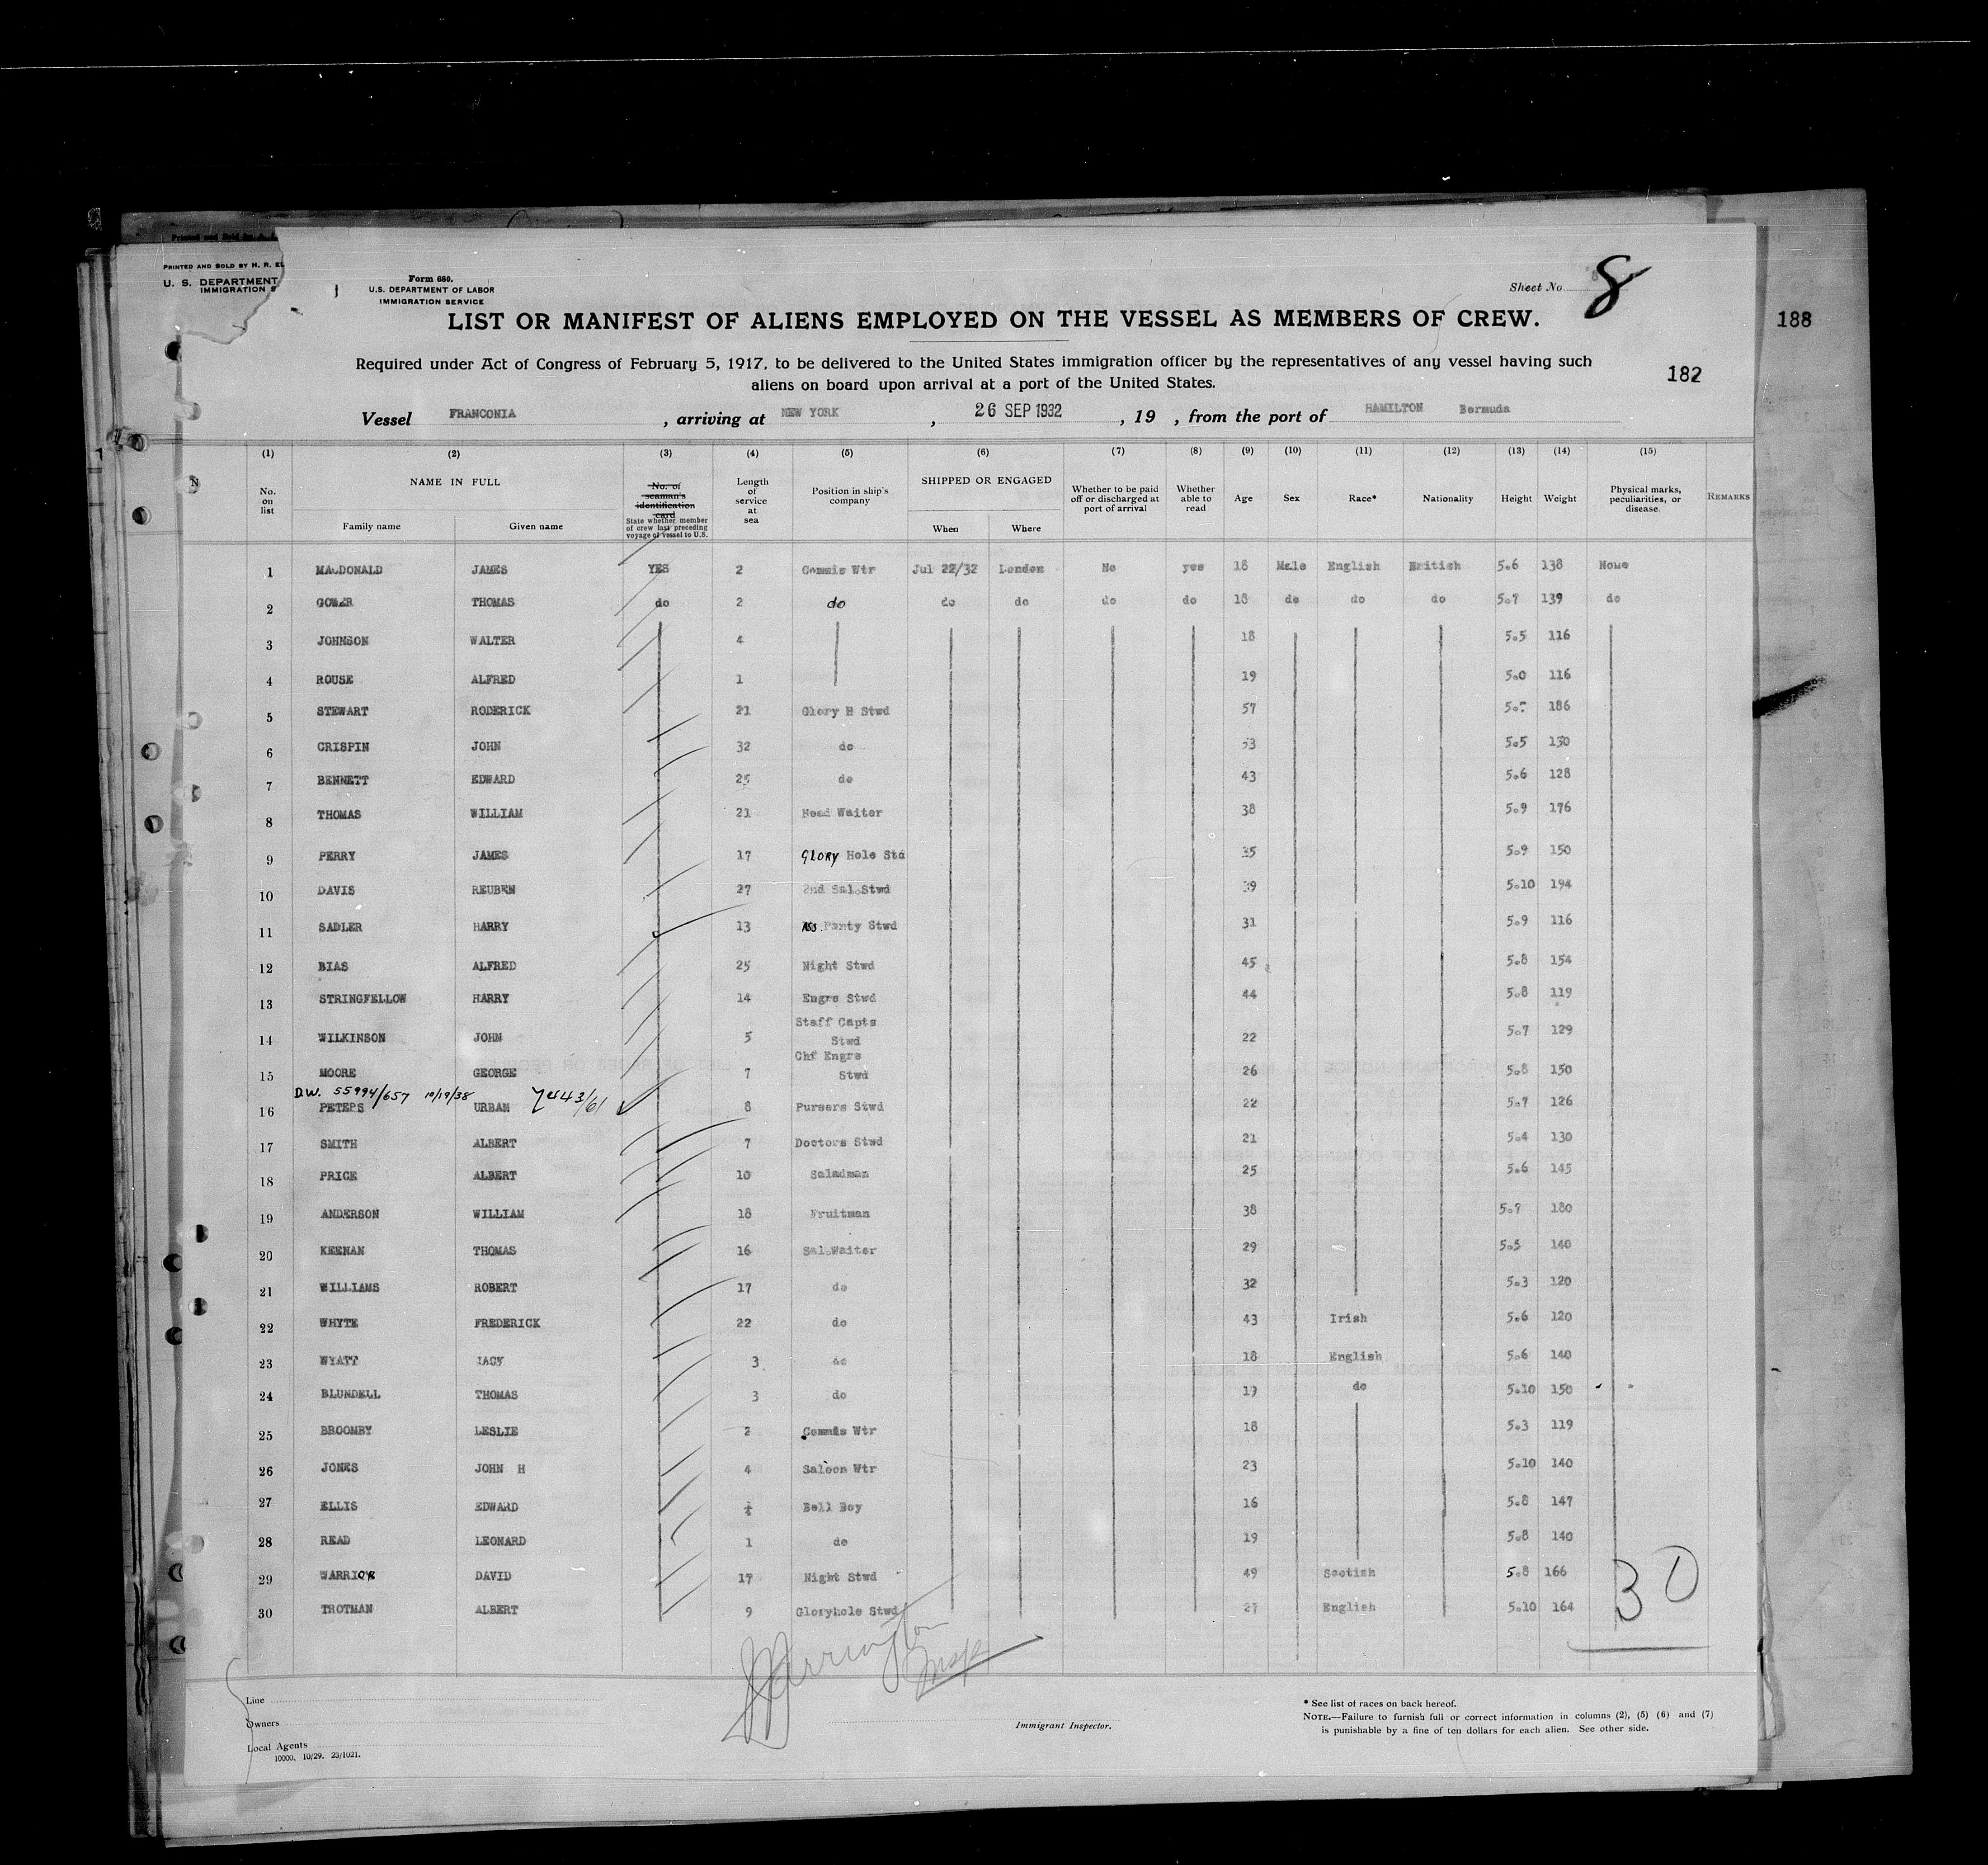 PRINTED AND SOLD BY H. R. EL
U. S. DEPARTMENT
IMMIGRATION S
Form 680.
U.S. DEPARTMENT OF LABOR
IMMIGRATION SERVICE
Sheet No. 8
LIST OR MANIFEST OF ALIENS EMPLOYED ON THE VESSEL AS MEMBERS OF CREW.
188
Required under Act of Congress of February 5, 1917, to be delivered to the United States immigration officer by the representatives of any vessel having such
aliens on board upon arrival at a port of the United States.
182
Vessel FRANCONIA , arriving at NEW YORK , 26 SEP 1932 , 19 , from the port of HAMILTON Bermuda
(1) (2) (3) (4) (5) (6) (7) (8) (9) (10) (11) (12) (13) (14) (15)
No. on list NAME IN FULL Family name Given name No. of seaman's identification card State whether member of crew last preceding voyage of vessel to U.S. Length of service at sea Position in ship's company SHIPPED OR ENGAGED When Where Whether to be paid off or discharged at port of arrival Whether able to read Age Sex Race* Nationality Height Weight Physical marks, peculiarities, or disease REMARKS
1 MACDONALD JAMES YES 2 Commis Wtr Jul 22/32 London No yes 18 Male English British 5.6 138 None
2 GOWER THOMAS do 2 do do do do do 18 do do do 5.7 139 do
3 JOHNSON WALTER 4 18 5.5 116
4 ROUSE ALFRED 1 19 5.0 116
5 STEWART RODERICK 21 Glory H Stwd 57 186
6 CRISPIN JOHN 32 do 53 5.5 130
7 BENNETT EDWARD 25 do 43 5.6 128
8 THOMAS WILLIAM 21 Head Waiter 38 5.9 176
9 PERRY JAMES 17 GLORY Hole Std 35 5.9 150
10 DAVIS REUBEN 27 2nd Sal.Stwd 39 5.10 194
11 SADLER HARRY 13 Ass. Panty Stwd 31 5.9 116
12 BIAS ALFRED 25 Night Stwd 45 5.8 154
13 STRINGFELLOW HARRY 14 Engrs Stwd 44 5.8 119
14 WILKINSON JOHN 5 Staff Capts Stwd 22 5.7 129
15 MOORE GEORGE 7 Chf Engrs Stwd 26 5.8 150
D.W. 55994/657 10/19/38 Yes43/61
16 PETERS URBAN 8 Pursers Stwd 22 5.7 126
17 SMITH ALBERT 7 Doctors Stwd 21 5.4 130
18 PRICE ALBERT 10 Saladman 25 5.6 145
19 ANDERSON WILLIAM 18 Fruitman 38 5.7 180
20 KEENAN THOMAS 16 Sal.Waiter 29 5.5 140
21 WILLIAMS ROBERT 17 do 32 5.3 120
22 WHYTE FREDERICK 22 do 43 Irish 5.6 120
23 WYATT 3 do 18 English 5.6 140
24 BLUNDELL THOMAS 3 do 19 do 5.10 150
25 BROOMBY LESLIE 2 Commis Wtr 18 5.3 119
26 JONES JOHN H 4 Saloon Wtr 23 5.10 140
27 ELLIS EDWARD Bell Boy 16 5.8 147
28 READ LEONARD 1 do 19 5.8 140
29 WARRIOR DAVID 17 Night Stwd 49 Scotish 5.8 166
30 TROTMAN ALBERT 9 Gloryhole Stwd 27 English 5.10 164
30
Line
Owners
Local Agents
10000, 10/29. 23/1021.
Immigrant Inspector.
* See list of races on back hereof.
NOTE.—Failure to furnish full or correct information in columns (2), (5) (6) and (7)
is punishable by a fine of ten dollars for each alien. See other side.